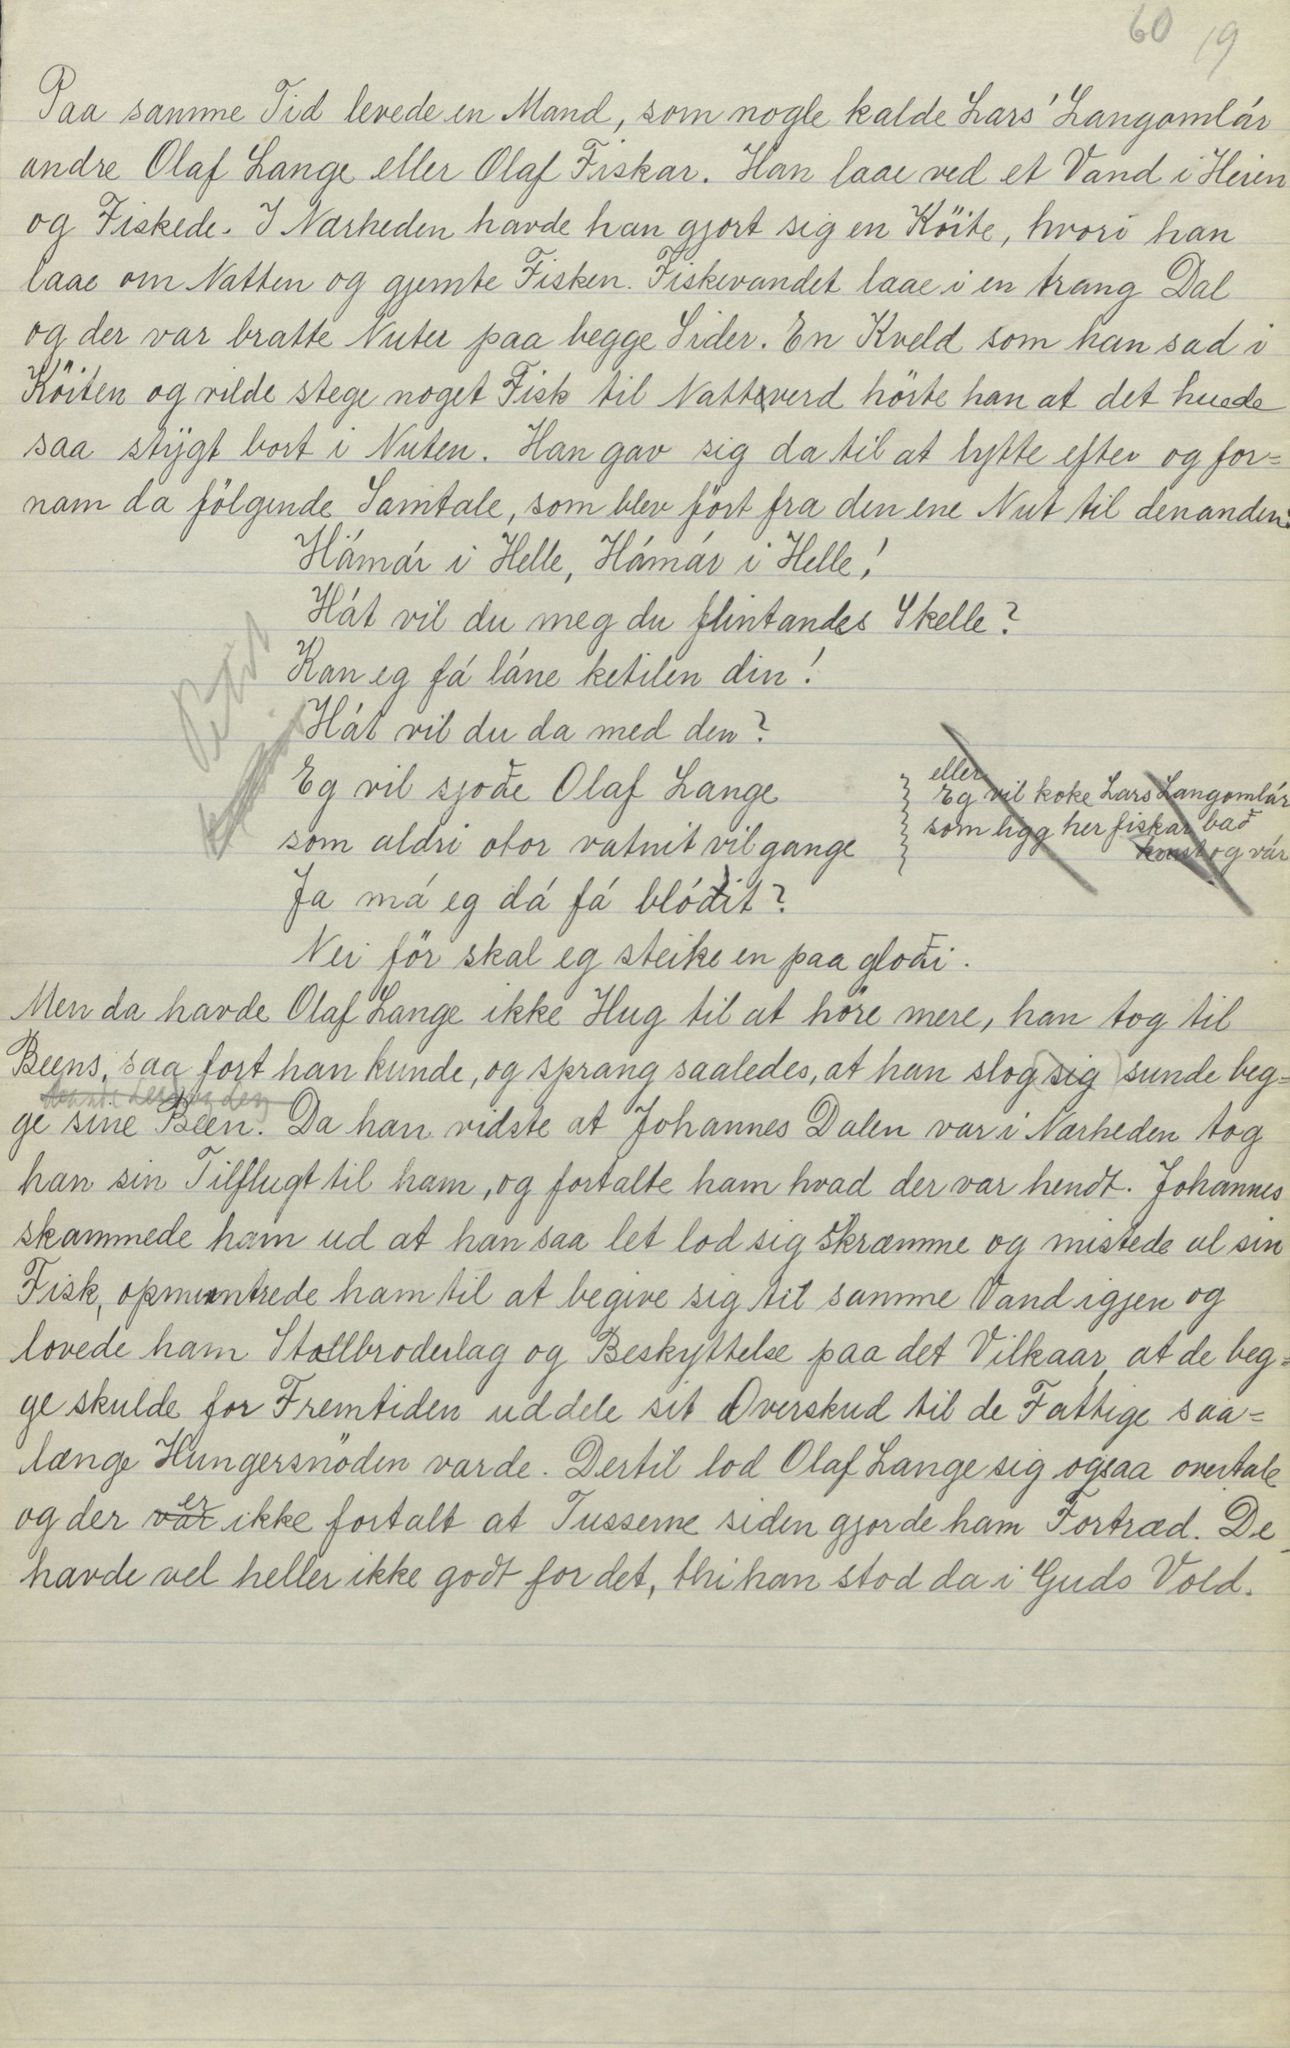 60 19
Paa samme Tid levede en Mand, som nogle kalde Lars' Langomlár
andre Olaf Lange eller Olaf Fiskar. Han laae ved et Vand i Heien
og Fiskede. I Nærheden havde han gjort sig en Köite, hvori han
laae om Natten og gjemte Fisken. Fiskevandet laae i en trang Dal
og der var bratte Nuter paa begge Sider. En Kveld som han sad i
Köiten og vilde stege noget Fisk til Nattverd hörte han at det huede
saa stÿgt bort i Nuten. Han gav sig da til at lytte efter og for=
nam da fölgende Samtale, som blev fört fra den ene Nut til denanden:
Hámár i Helle, Hámár i Helle!
Hát vil du meg du flintandes Skelle?
Kan eg fá láne ketilen din!
Hát vil du da med den?
Eg vil sjođe Olaf Lange
som aldri otor vatnit vil gange
eller
Eg vil koke Lars Langomlár
som ligg her fiskar bađ
og vár
Ja má eg dá fá blóđit?
Nei för skal eg steike en paa glođi.
Men da havde Olaf Lange ikke Hug til at höre mere, han tog til
Beens, saa fort han kunde, og sprang saaledes, at han slog (sig) sunde beg=
ge sine Been. Da han vidste at Johannes Dalen var i Nærheden tog
han sin Tilflugt til ham, og fortalte ham hvad der var hendt. Johannes
skammede ham ud at han saa let lod sig skræmme og mistede al sin
Fisk, opmuntrede ham til at begive sig til samme Vand igjen og
lovede ham Stallbroderlag og Beskyttelse paa det Vilkaar, at de beg=
ge skulde for Fremtiden uddele sit Overskud til de Fattige saa=
længe Hungersnöden varde. Dertil lod Olaf Lange sig ogsaa overtale
og der var er ikke fortalt at Tusserne siden gjorde ham Fortræd. De
havde vel heller ikke godt for det, thi han stod da i Guds Vold.